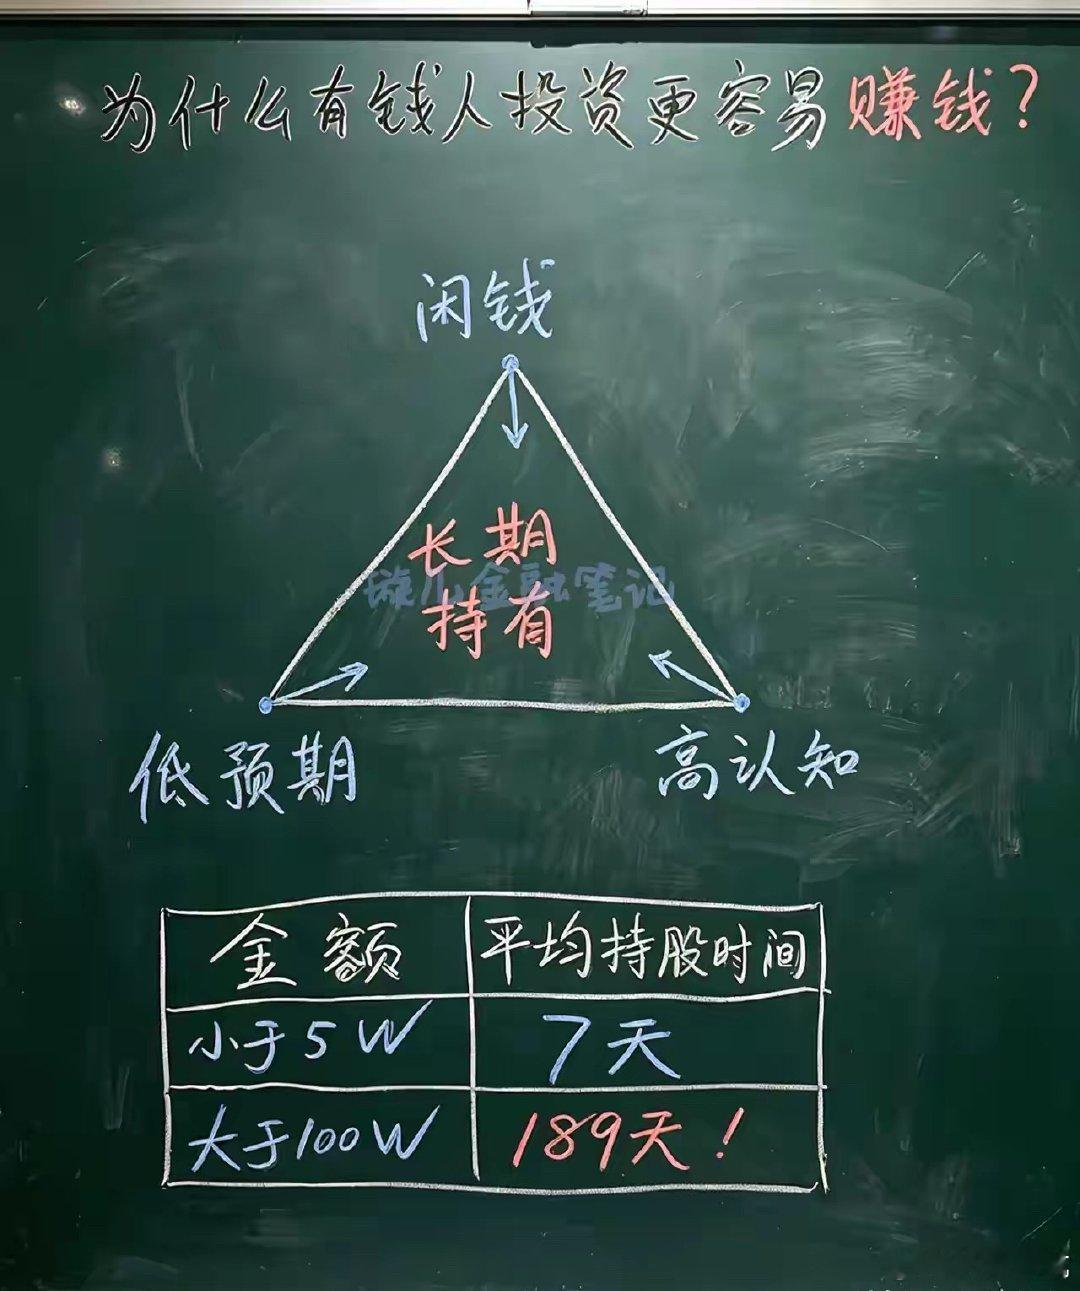 为什么有钱人投资更容易赚钱?
闲钱
长期
璇儿金融笔记
持有
低预期
高认知
金额 平均持股时间
小于5W 7天
大于100W 189天!